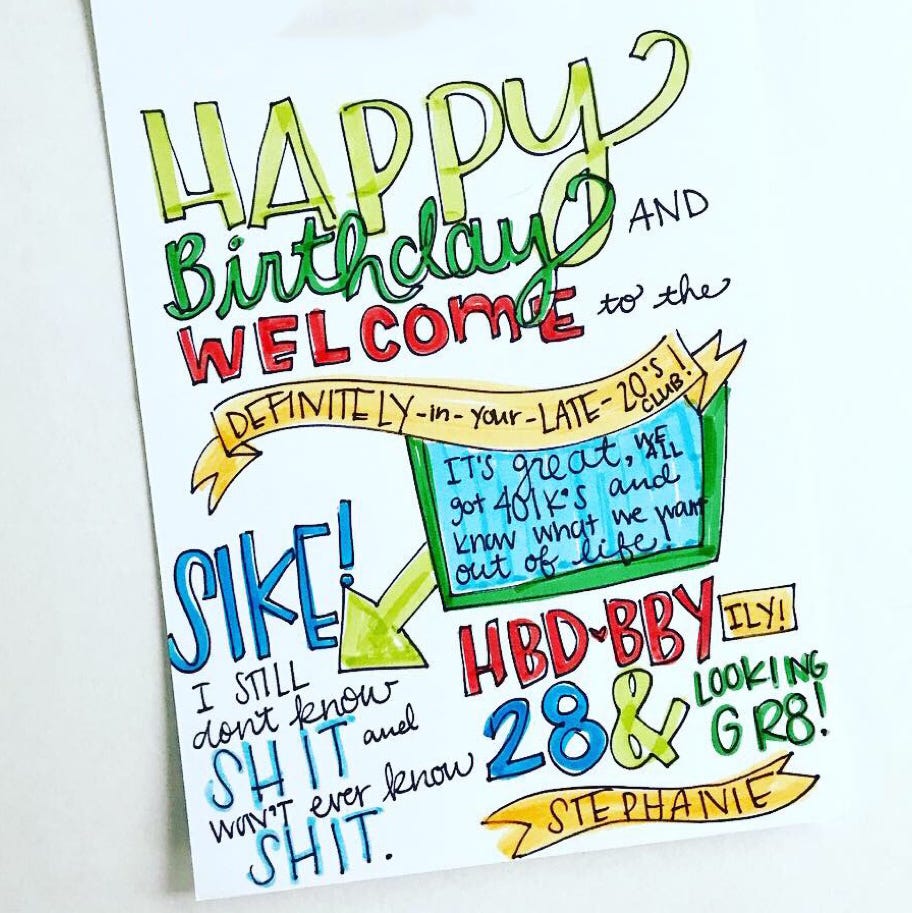 HAPPY
Birthday AND
WELCOME to the
DEFINITELY-in-your-LATE-20'S
CLUB!
IT'S great, WE ALL
got 401K'S and
know what we want
out of life!
SIKE!
I STILL
don't know
SHIT and
WON'T ever know
SHIT.
HBD♥BBY ILY!
28 & LOOKING
GR8!
STEPHANIE